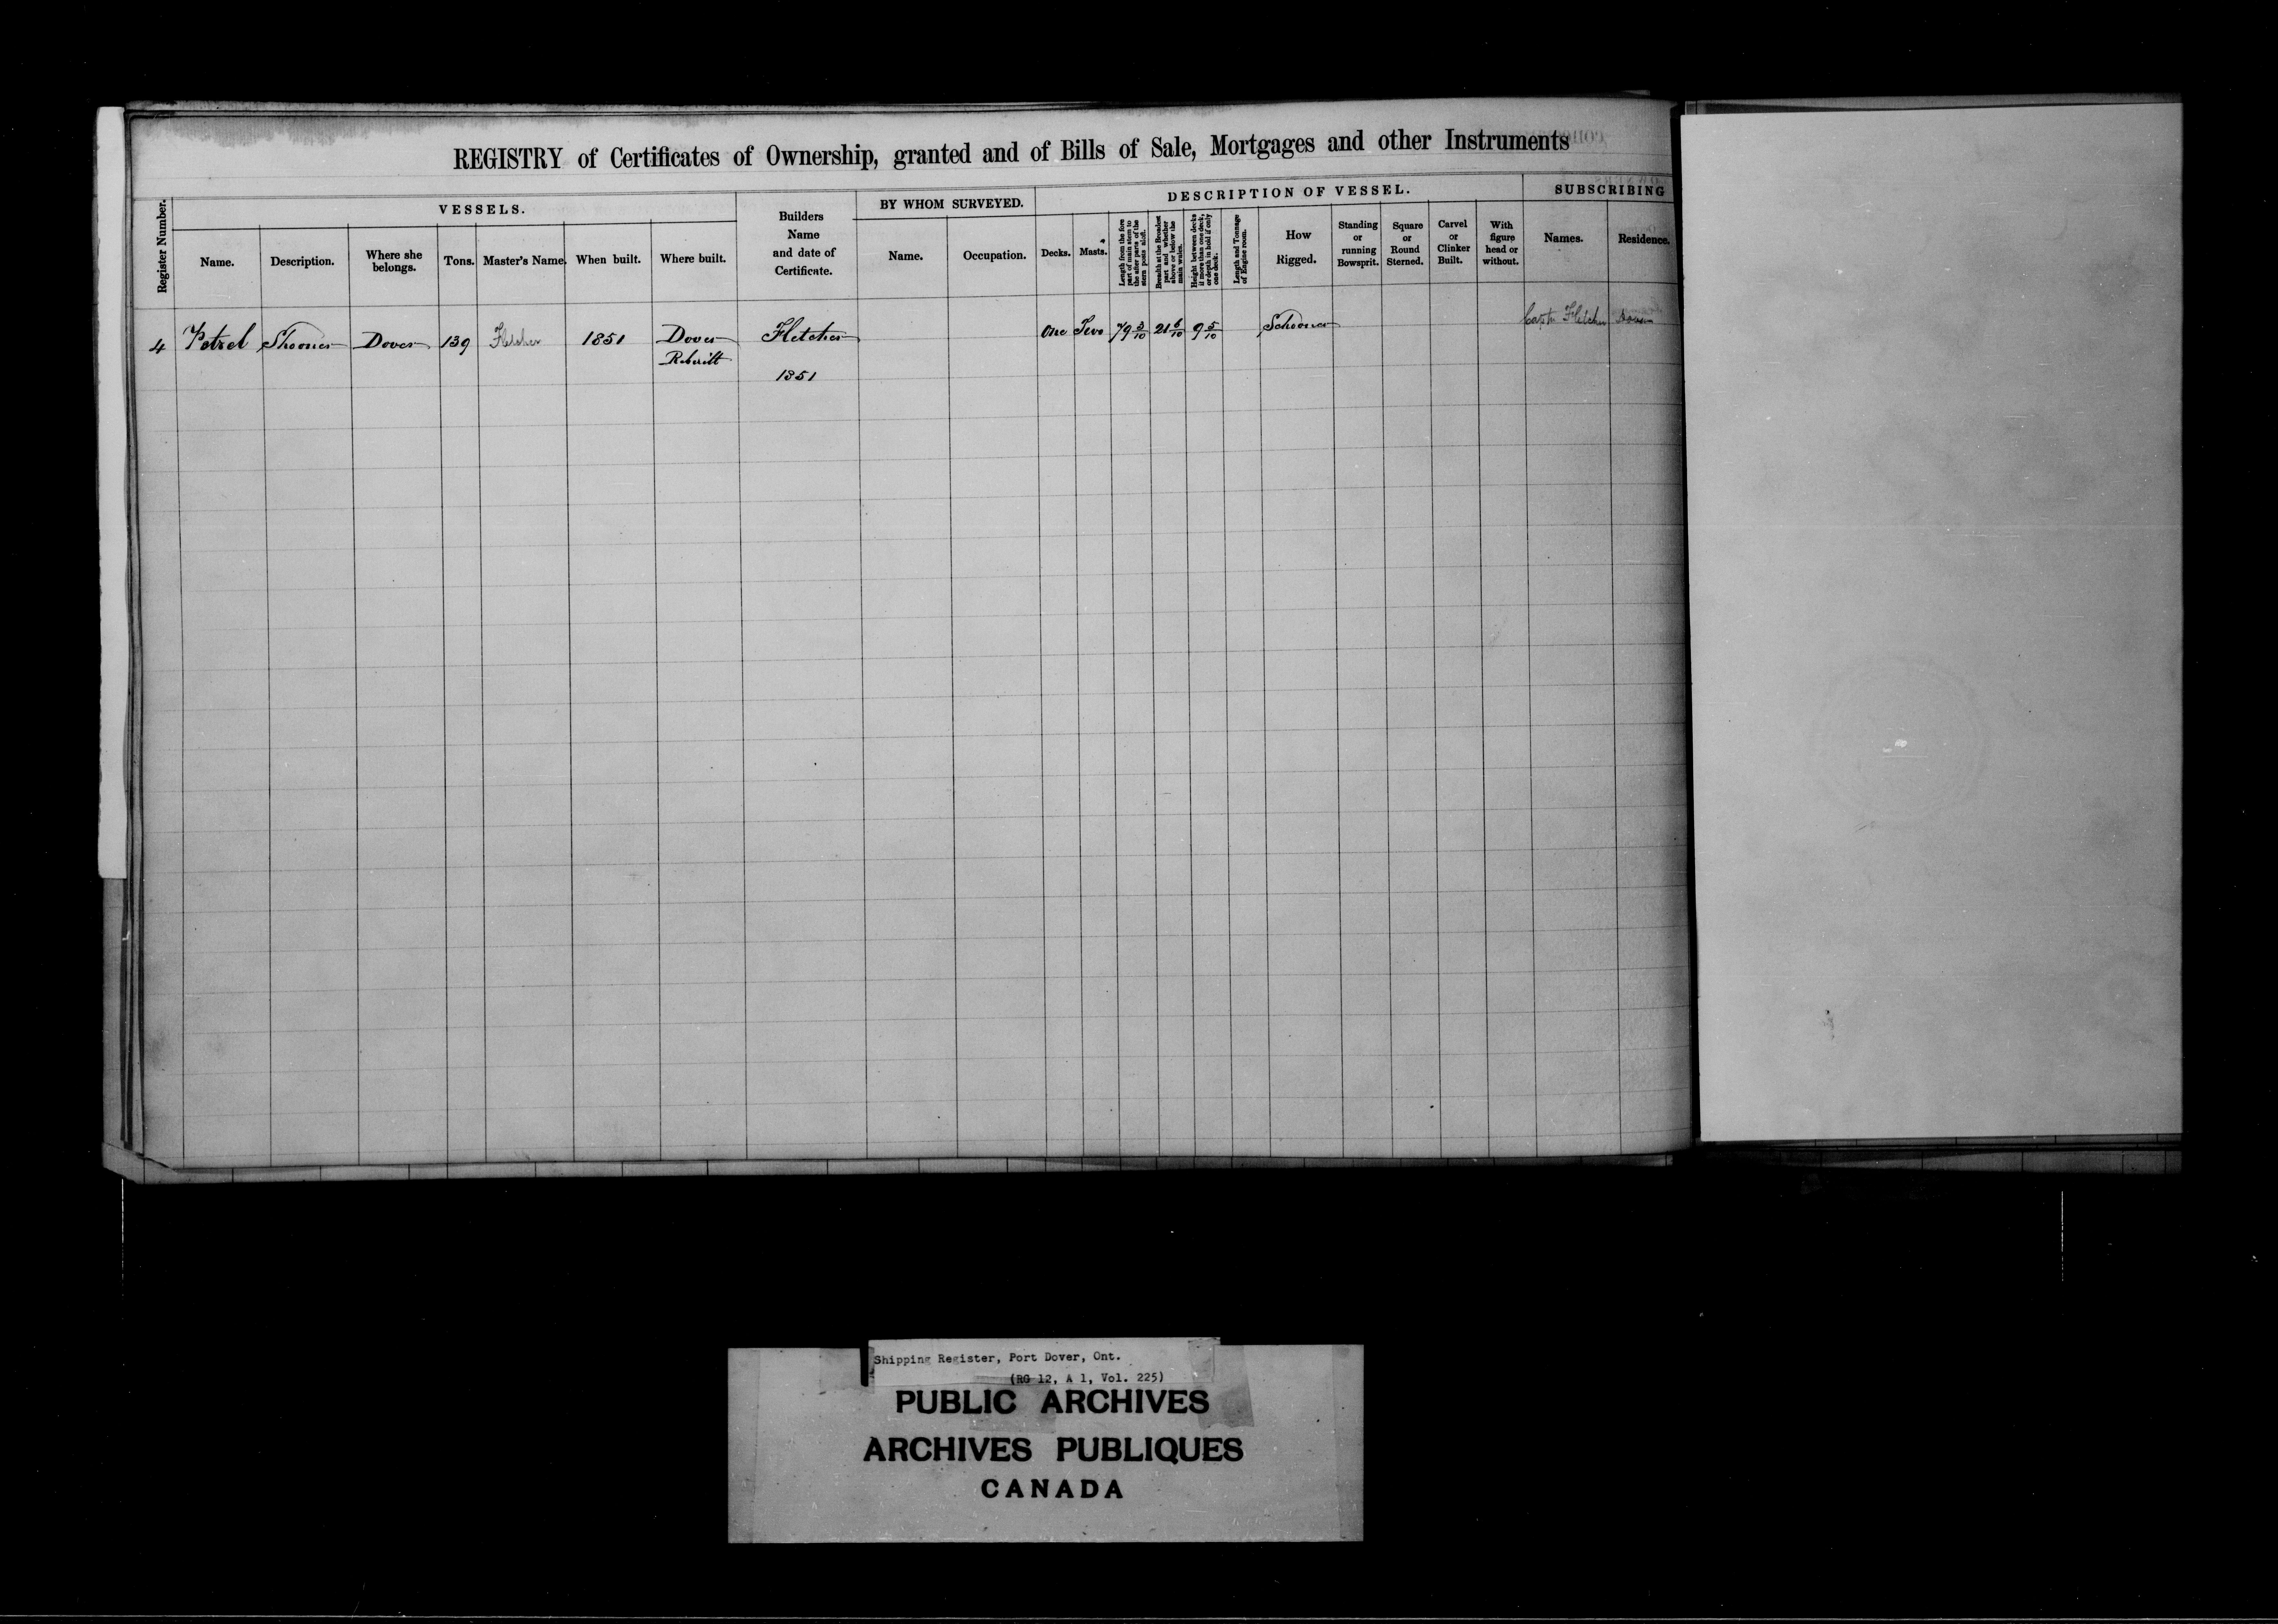 REGISTRY of Certificates of Ownership, granted and of Bills of Sale, Mortgages and other Instruments
Register Number.
VESSELS.
Name.
Description.
Where she
belongs.
Tons.
Master's Name.
When built.
Where built.
Builders
Name
and date of
Certificate.
BY WHOM SURVEYED.
Name.
Occupation.
DESCRIPTION OF VESSEL.
Decks.
Masts.
Length from the fore
part of main stem to
the after parts of the
stern posts aloft.
Breadth at the Broadest
part and whether
above or below the
main wales.
Height between decks
if more than one deck,
or depth in hold if only
one deck.
Length and Tonnage
of Engine room.
How
Rigged.
Standing
or
running
Bowsprit.
Square
or
Round
Sterned.
Carvel
or
Clinker
Built.
With
figure
head or
without.
SUBSCRIBING
Names.
Residence.
4 Petrel Shooner Dover 139 Fletcher 1851 Dover Fletcher One Two 79 3/10 21 6/10 9 5/10 Schooner Captn Fletcher Dover
Rebuilt
1851
Shipping Register, Port Dover, Ont.
(RG 12, A 1, Vol. 225)
PUBLIC ARCHIVES
ARCHIVES PUBLIQUES
CANADA